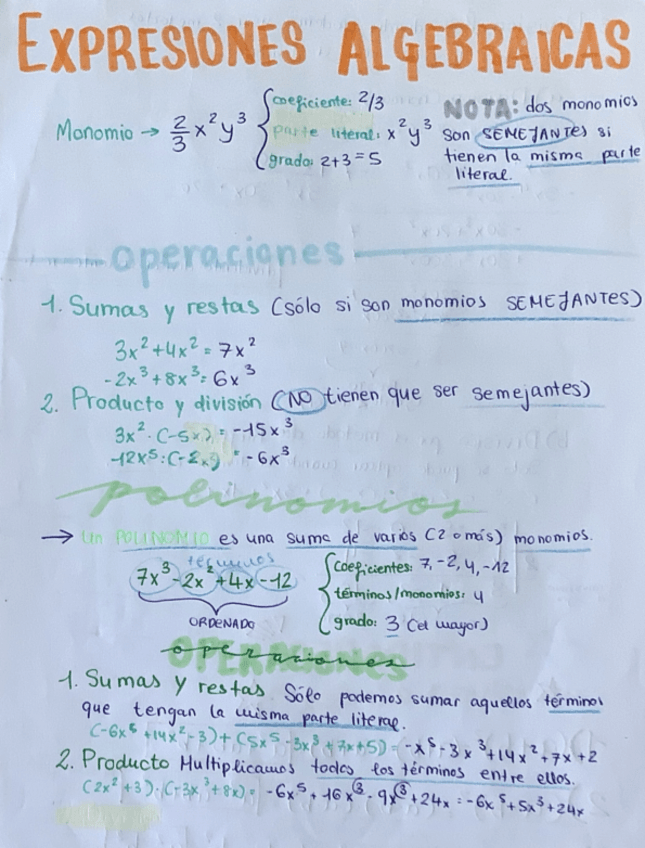 EXPRESIONES ALGEBRAICAS
Monomio → 2/3 x²y³ { coeficiente: 2/3
parte literal: x²y³
grado: 2+3=5
NOTA: dos monomios
son SEMEJANTES si
tienen la misma parte
literal.
operaciones
1. Sumas y restas (sólo si son monomios SEMEJANTES)
3x²+4x²=7x²
-2x³+8x³=6x³
2. Producto y división (NO tienen que ser semejantes)
3x²·(-5x)=-15x³
-12x⁵:(-2x²)=-6x³
polinomios
→ Un POLINOMIO es una suma de varios (2 o más) monomios.
términos
7x³-2x²+4x-12
ORDENADO
{ coeficientes: 7,-2,4,-12
términos/monomios: 4
grado: 3 (el mayor)
OPERACIONES
operaciones
1. Sumas y restas Sólo podemos sumar aquellos términos
que tengan la misma parte literal.
(-6x⁵+14x²-3)+(5x⁵-3x³+7x+5)=-x⁵-3x³+14x²+7x+2
2. Producto Multiplicamos todos los términos entre ellos.
(2x²+3)·(-3x³+8x)=-6x⁵+16x³-9x³+24x=-6x⁵+5x³+24x